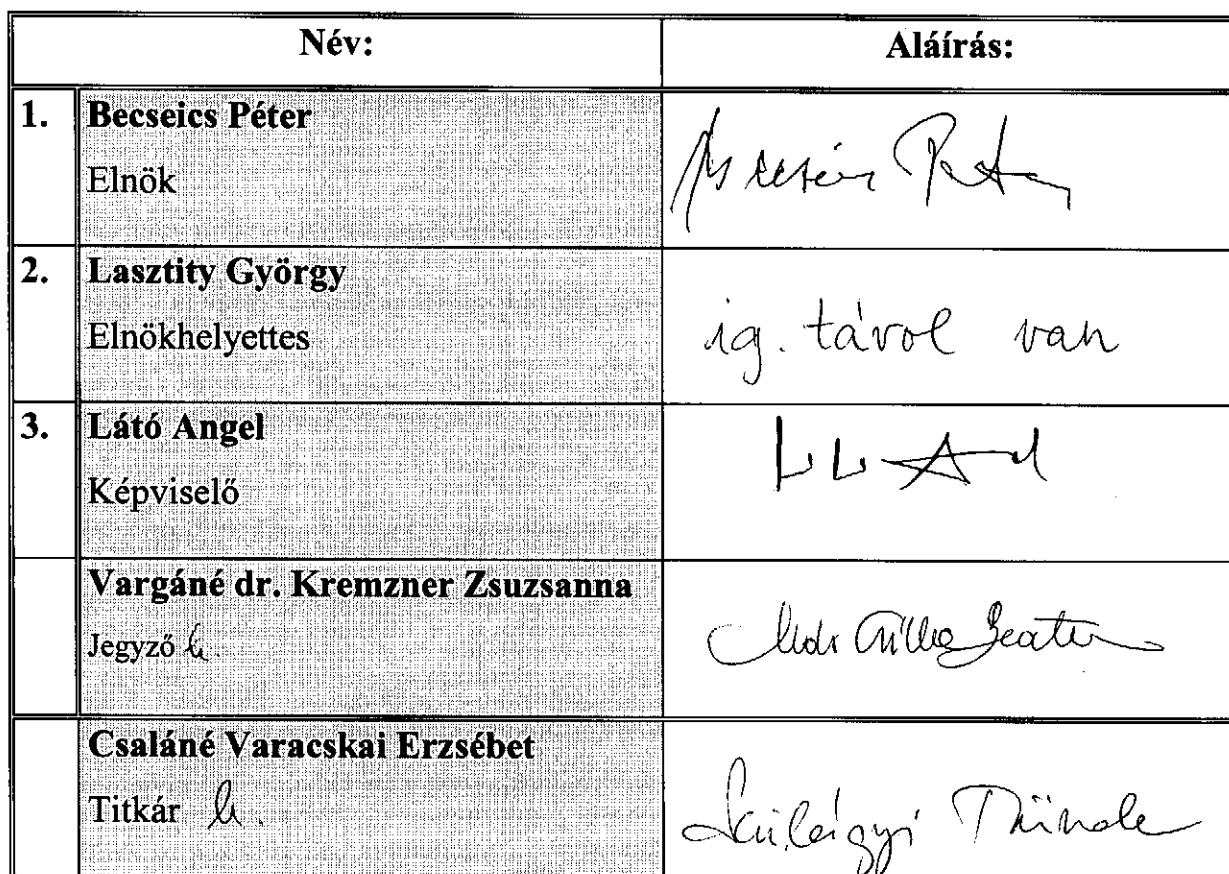 Név: Aláírás:
1. Becseics Péter
Elnök
2. Lasztity György
Elnökhelyettes
ig. távol van
3. Látó Angel
Képviselő
Vargáné dr. Kremzner Zsuzsanna
Jegyző h.
Csaláné Varacskai Erzsébet
Titkár h.
Szilágyi Tünde